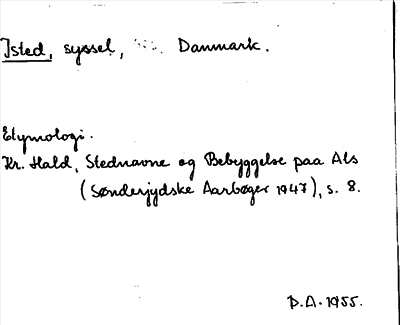 Isted, syssel, Danmark.
Etymologi.
Kr. Hald, Stednavne og Bebyggelse paa Als
(Sønderjydske Aarbøger 1947), s. 8.
Þ.A. 1955.